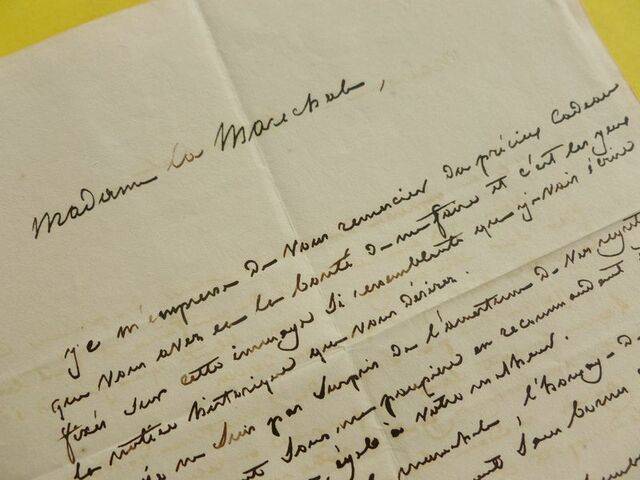 Madame la Marechale,
Je m'empresse de vous remercier du précieux cadeau
que vous avez eu la bonté de me faire et c'est les yeux
fixés sur cette image si ressemblante que je vais écrire
la notice historique que vous désirez.
Je ne suis pas surpris de l'amertume de vos regrets
sous ma paupière en recommandant
égale à votre malheur.
maréchale l'hommage de
sans bornes